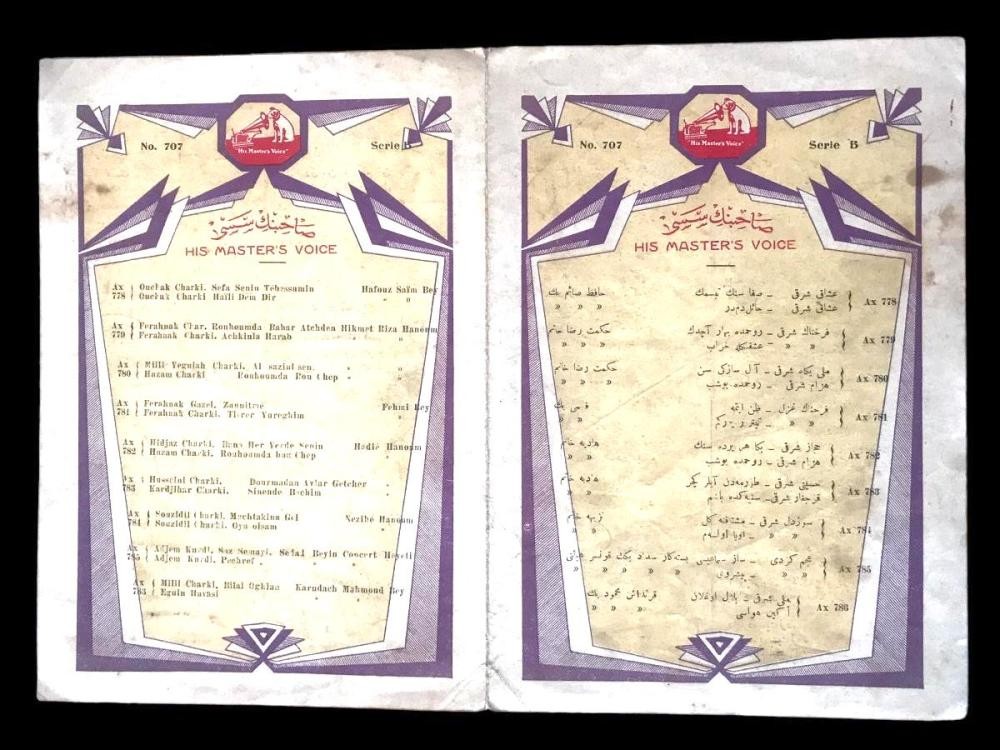 No. 707
"His Master's Voice"
Serie B
صاحبنك سسى
HIS MASTER'S VOICE
Ax 778 { Ouchak Charki. Sefa Senin Tebessumin Hafouz Saïm Bey
Ouchak Charki Haïli Dem Dir " "
Ax 779 { Ferahnak Char. Rouhoumda Bahar Atchdea Hikmet Riza Hanoum
Ferahnak Charki. Achkinla Harab " "
Ax 780 { Milli Yeguiah Charki. Al sazini sen. " "
Hazam Charki Rouhoumda Bou Chep " "
Ax 781 { Ferahnak Gazel. Zannitme Fehmi Bey
Ferahnak Charki. Titrer Yureghim "
Ax 782 { Hidjaz Charki. Bana Her Yerde Senin Hadié Hanoum
Hazam Charki. Rouhoumda bou Chep "
Ax 783 { Husseini Charki. Dourmadan Aylar Getcher "
Kardjihar Charki. Sinende Bachim "
Ax 784 { Souzidil Charki. Muchtakina Gel Nezihé Hanoum
Souzidil Charki. Oya olsam "
Ax 785 { Adjem Kurdi. Saz Semayi. Sedad Beyin Concert Heyeti
Adjem Kurdi. Pechref " " "
Ax 783 { Milli Charki. Bilal Oghlan Karndach Mahmoud Bey
Eguin Havasi " " "
No. 707
"His Master's Voice"
Serie B
صاحبنك سسى
HIS MASTER'S VOICE
Ax 778 { عشاق شرقى – صفا سنك تبسمك حافظ صائم بك
عشاق شرقى – حائل دم در " " "
Ax 779 { فرحناك شرقى – روحمده بهار آچدك حكمت رضا خانم
" " – عشقكله خراب " " "
Ax 780 { ملى يگاه شرقى – آل سازكى سن حكمت رضا خانم
هزام شرقى – روحمده بوشب " " "
Ax 781 { فرحناك غزل – ظن ايتمه فهمى بك
" " – تيترر يوركم " "
Ax 782 { حجاز شرقى – بكا هر يرده سنك هاديه خانم
هزام شرقى – روحمده بوشب " "
Ax 783 { حسينى شرقى – طورمدن آيلر كچر هاديه خانم
قرجغار شرقى – سينه‌كده باشم " "
Ax 784 { سوزدل شرقى – مشتاقنه گل نزيهه خانم
" " – اويا اولسه‌م " "
Ax 785 { عجم كردى – ساز سماعيسى بسته‌كار سداد بك قونسر هيئتى
" " – پشروى " " " "
Ax 786 { ملى شرقى – بلال اوغلان قرنداش محمود بك
اگين هواسى " " "